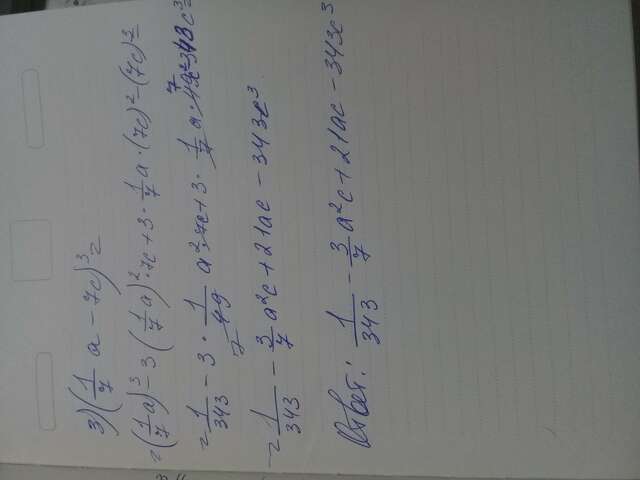 3) (1/7 a - 7c)³ =
= (1/7 a)³ - 3 (1/7 a)² · 7c + 3 · 1/7 a · (7c)² - (7c)³ =
= 1/343 - 3 · 1/49 a² · 7c + 3 · 1/7 a · 49c² - 343c³ =
= 1/343 - 3/7 a²c + 21ac - 343c³.
Ответ: 1/343 - 3/7 a²c + 21ac - 343c³